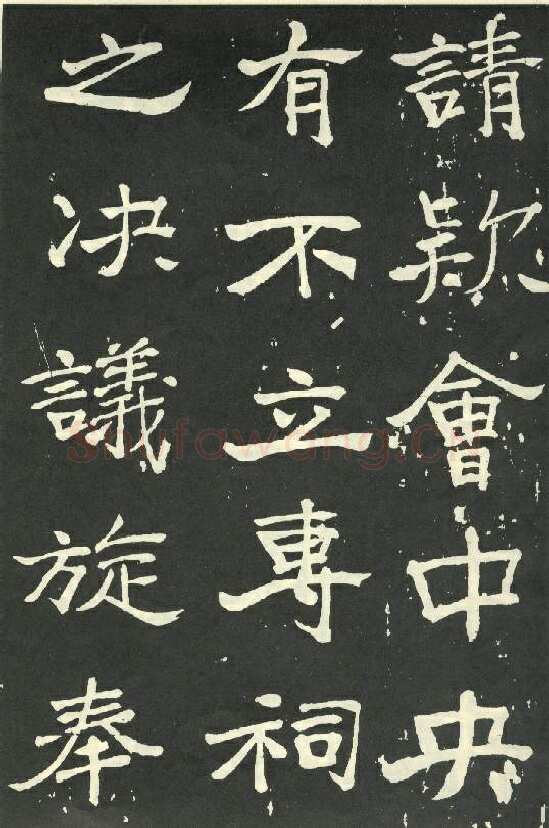 請欵會中央
有不立專祠
之决議旋奉
Shufawang.cn